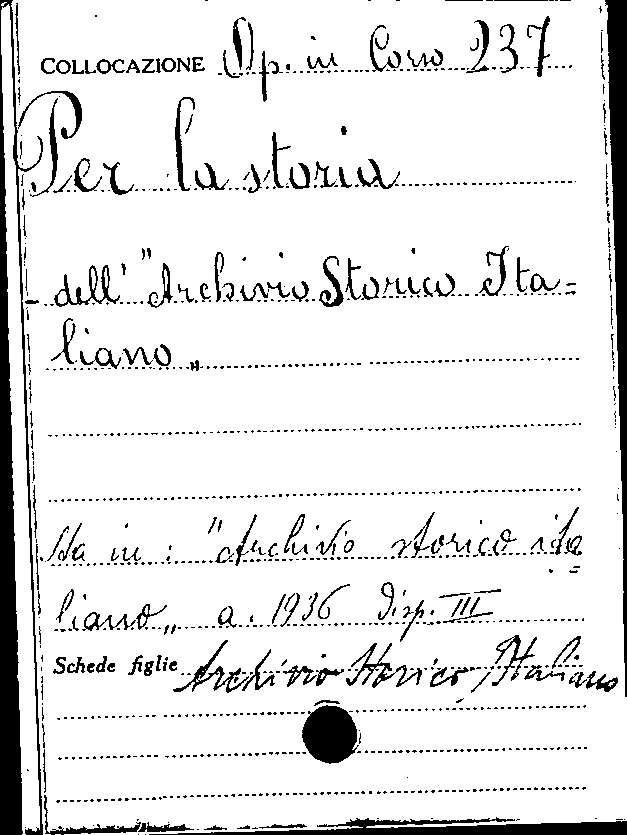 COLLOCAZIONE Op. in Corso 237
Per la storia
dell' "Archivio Storico Ita=
liano„
Sta in : "Archivio storico ita=
liano„ a. 1936 Disp. III
Schede figlie Archivio Storico Italiano